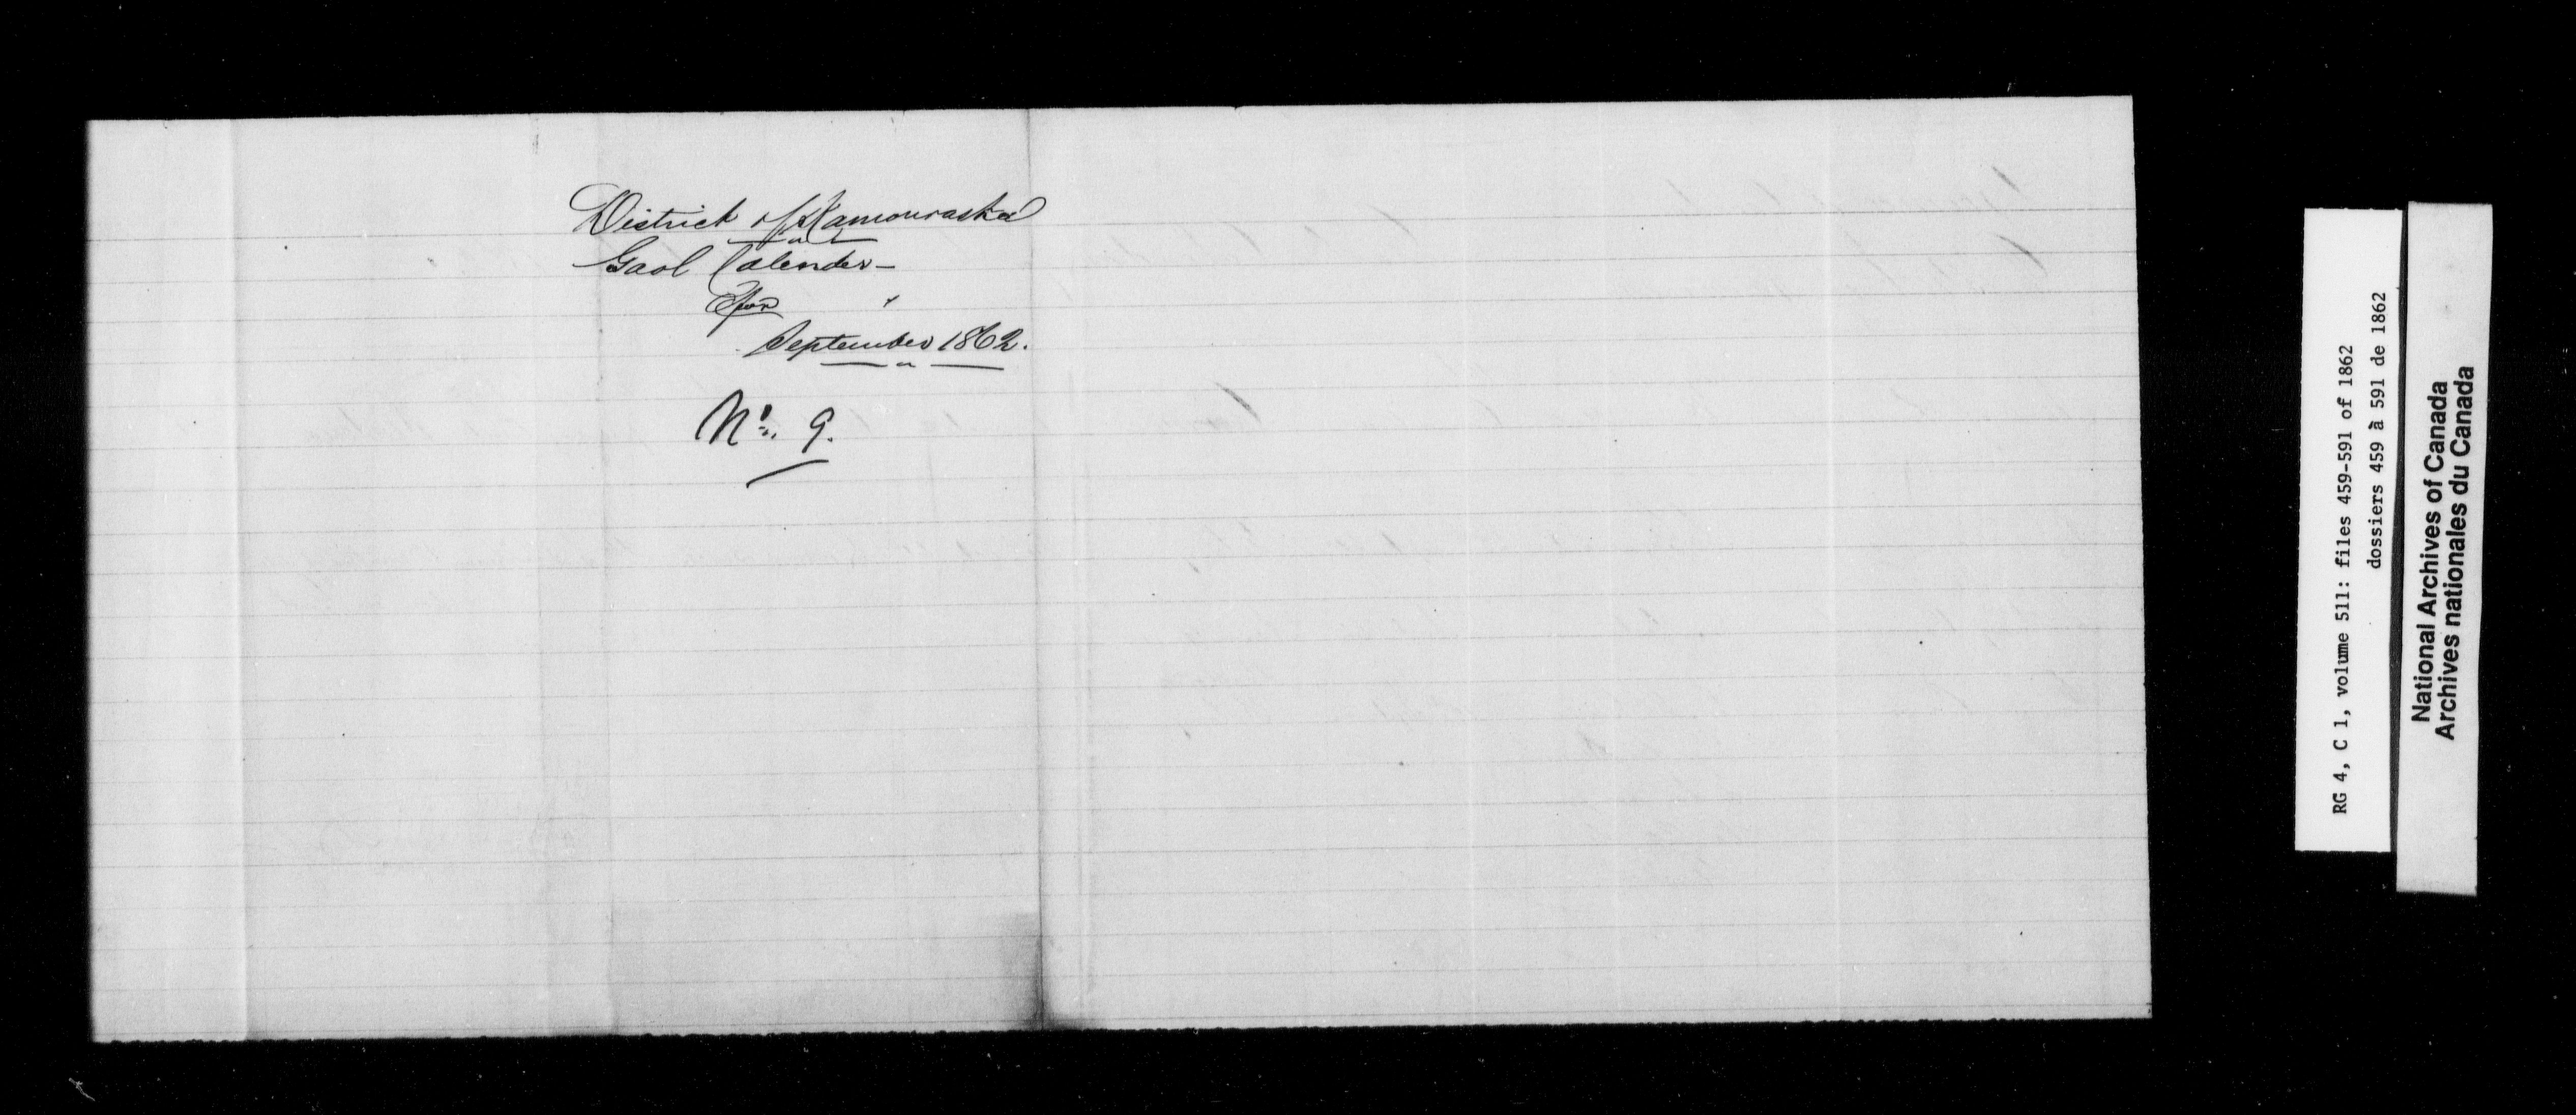 District of Kamouraska
Gaol Calender-
For
September 1862.
No. 9.
RG 4, C 1, volume 511: files 459-591 of 1862
dossiers 459 à 591 de 1862
National Archives of Canada
Archives nationales du Canada